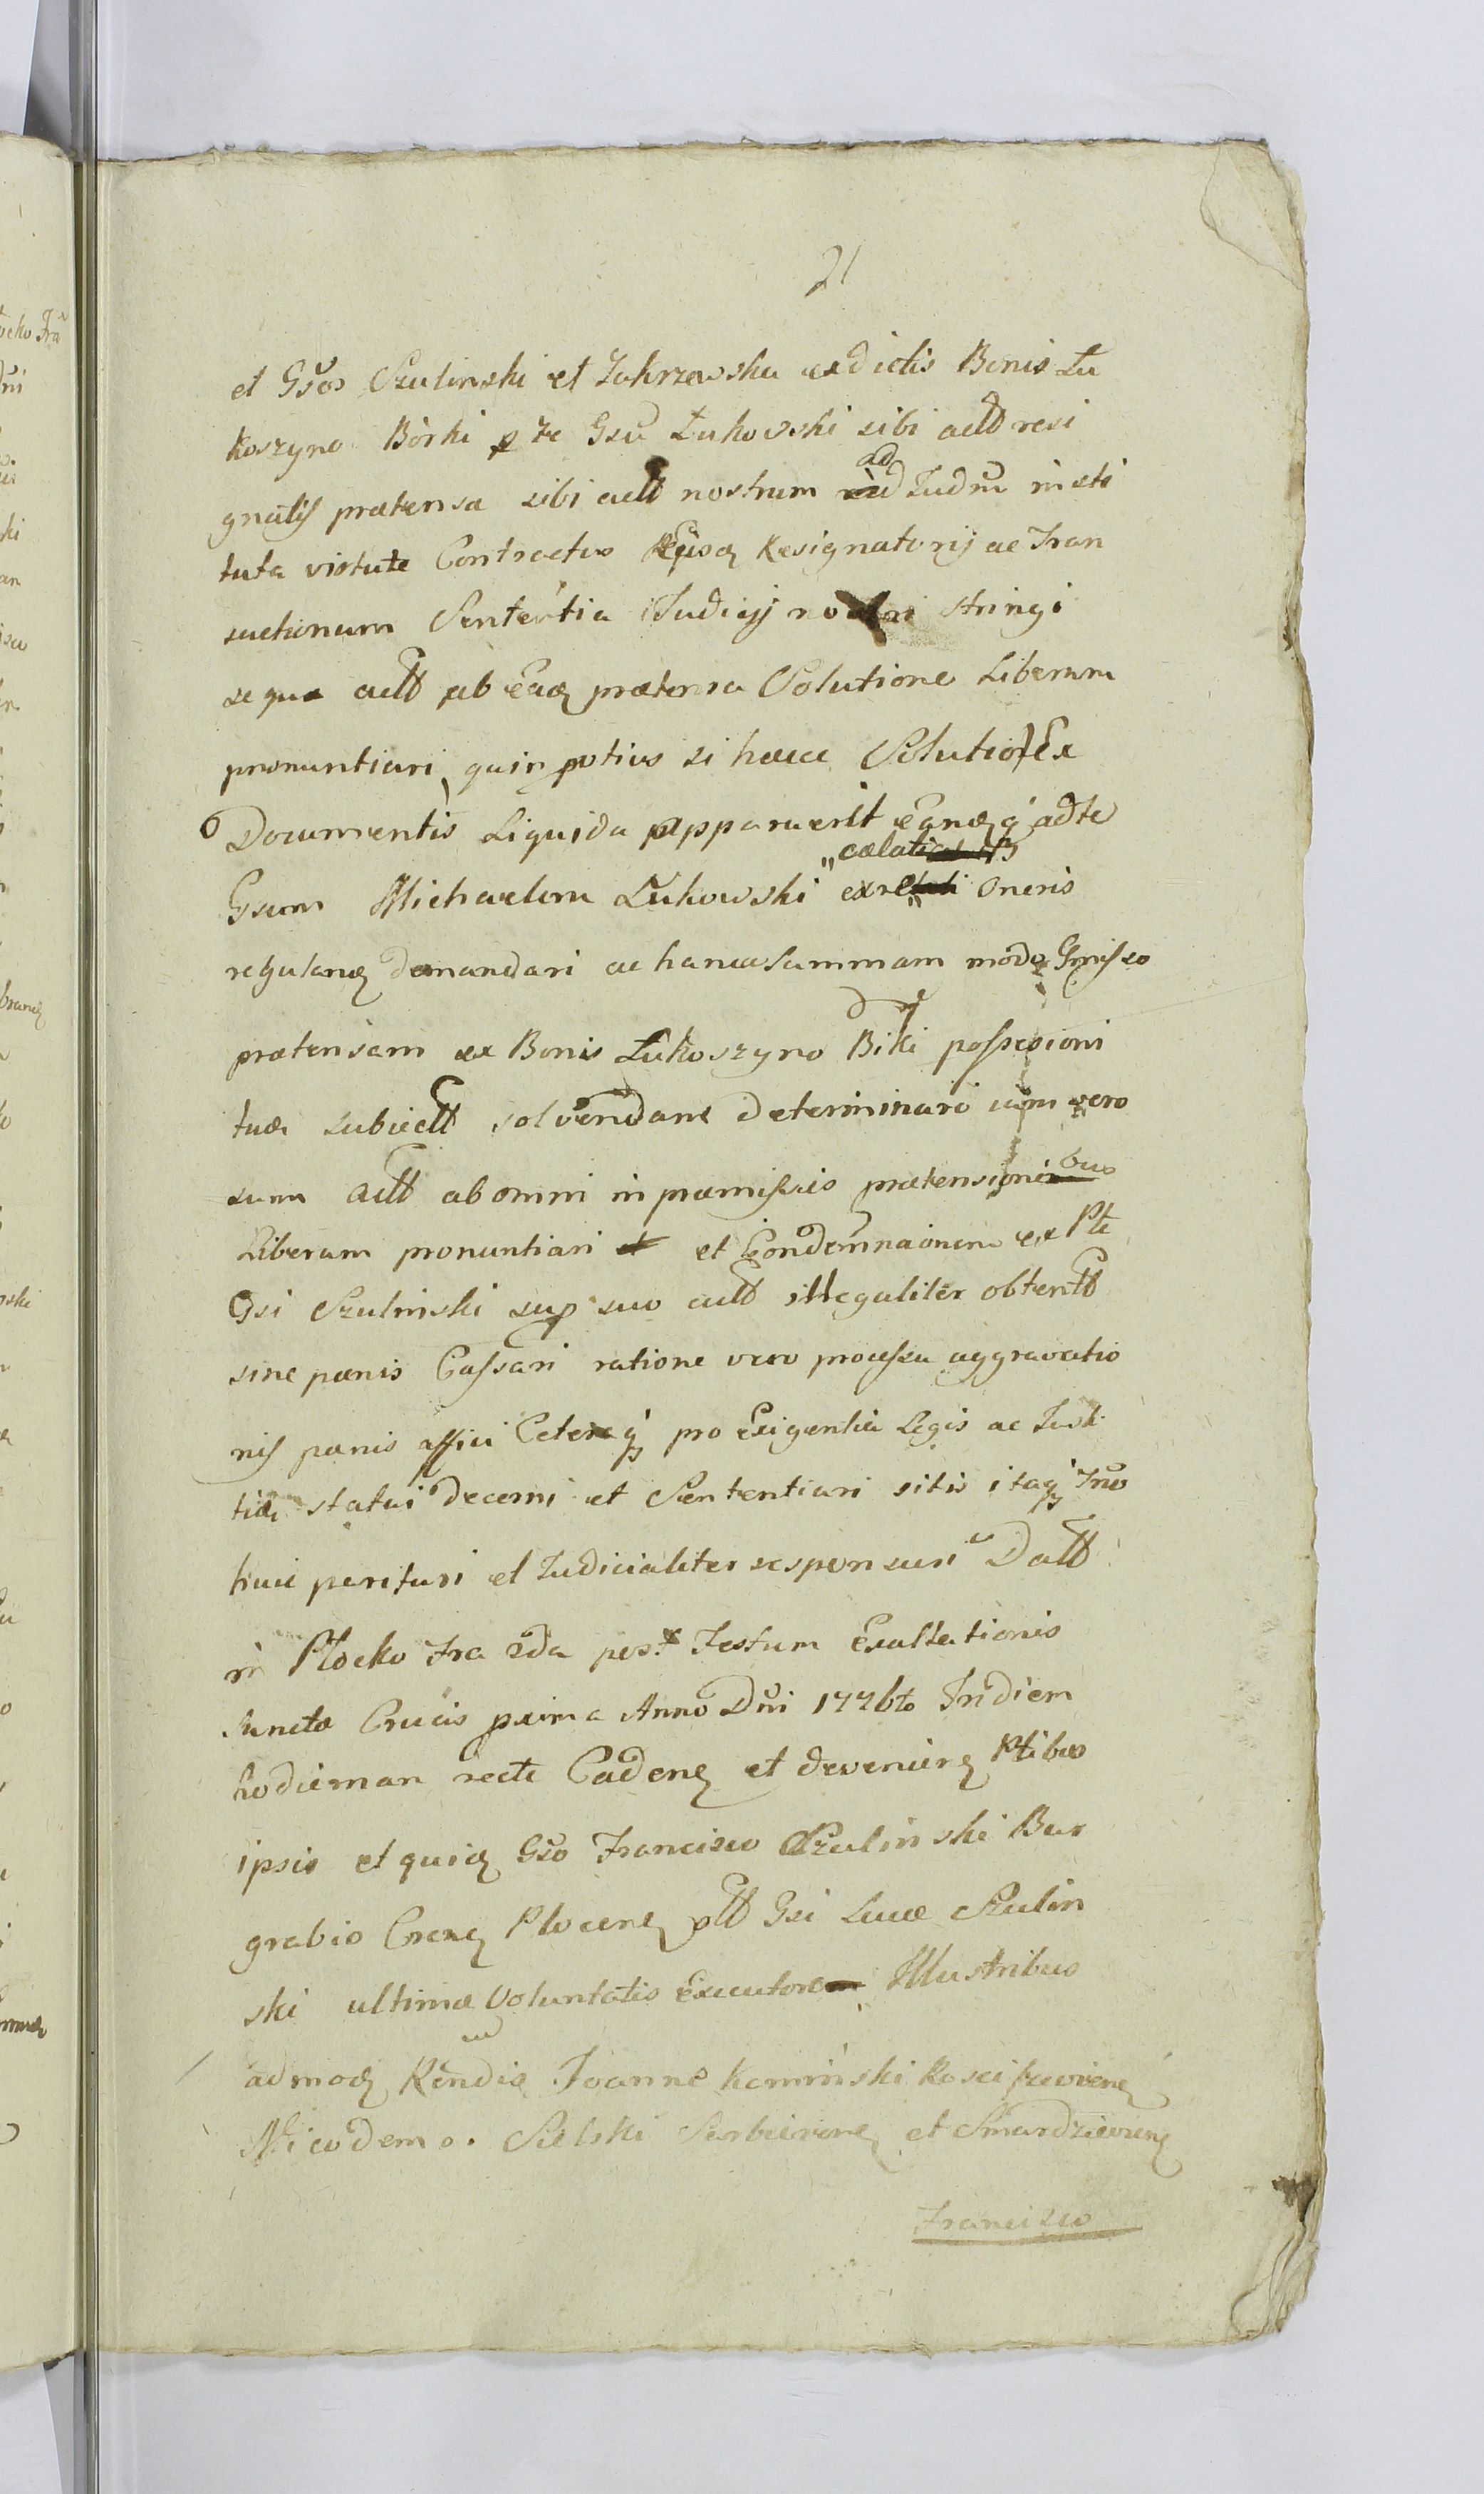 21
et Gsos Szulinski et Zakrzewska ex dictis Bonis Łu
koszyno Bòrki p Te Gsu Łukowski sibi actt resi
gnatis prætensa sibi actt nostrum ad Judm insti
tuta virtute Contractus Resignatorij ac Tran
sactionum Sententia Judicij nostri stringi
se que actt ab Eadq prætensa Solutione Liberam
pronuntiari quin potius si hæcce Solutio Ex
Documentis Liquida apparuerit adte
Gsum Michaelem Łukowski exrelati Oneris
regulanq demandari ac hancce Summam modo præmisso
prætensam ex Bonis Łukoszyno Biki possesioni
tuæ subiectt solvendam determinari iam vero
sum actt ab omni in præmissis prætensionibus
Liberam pronuntiari et Condemnaonem ex Pte
Gsi Szulinski sup suo actt illegaliter obtentt
sine pænis Cassari ratione vero processu aggravatio
nis pænis affici Ceteraq pro Exigentia Legis ac Justi
tiæ statui decerni et Sententiari sitis itaq Tno
huic parituri et Judicialiter responsuri Datt
in Plocko fra 2da post Festum Exaltationis
Sanctæ Crucis pxima Anno Dni 1776to In diem
hodiernam recte Cadenq et devenienq Ptibus
ipsis et quidq Gso Francisco Szulinski Bur
grabio Crenq Plocenq ptt Gsi Lucæ Szulin
ski ultimæ Voluntatis Executore Illustribus
admoq Rendis Joanne Kaminski
Nicodemo. Sielski et Smardzewenq
Francisco